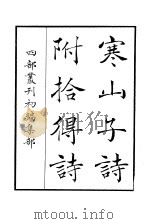 寒山子詩
附拾得詩
四部叢刊初編集部